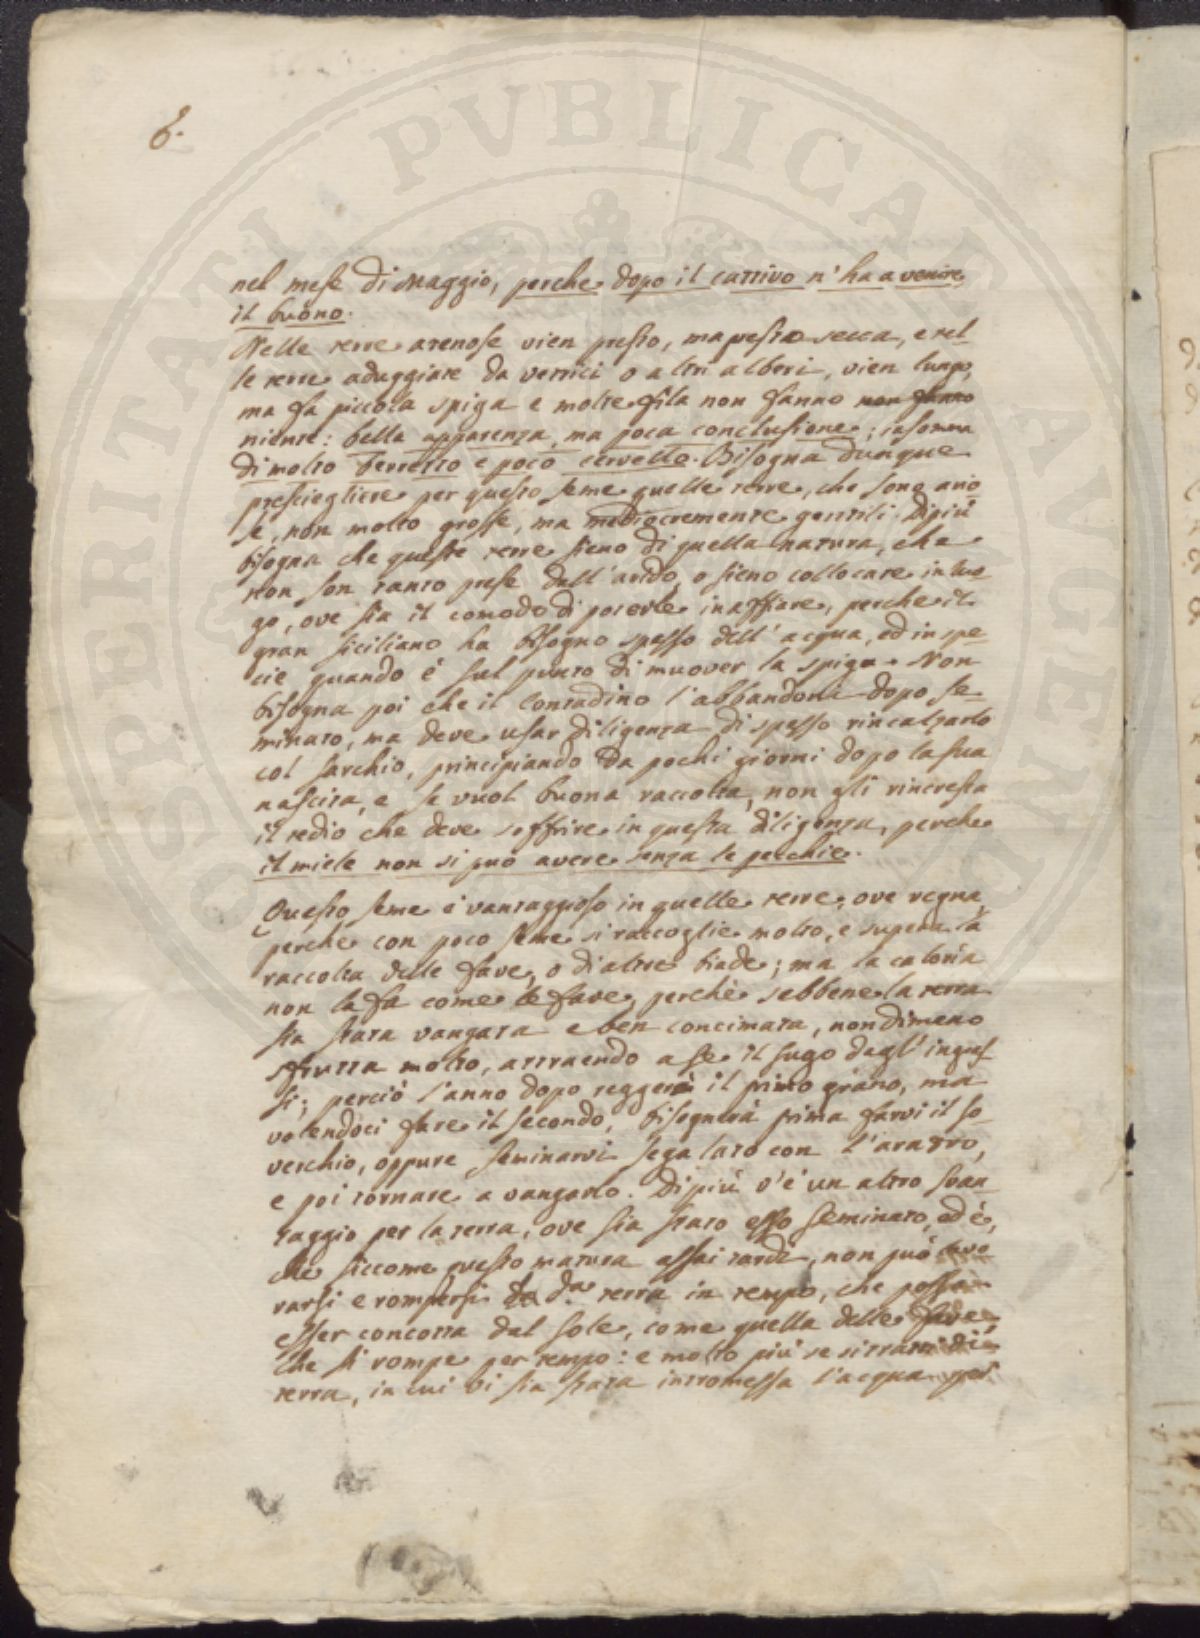 6.
nel mese di Maggio, perche dopo il cattivo n'ha a venire
il buono.
Nelle terre arenose vien presto, ma presto secca, e nel-
le terre aduggiate da vernici o altri alberi, vien lungo,
ma fa piccola spiga e molte fila non fanno non fanno
niente: bella apparenza, ma poca conclusione; insomma
di molto berretto e poco cervello. Bisogna dunque
presciegliere per questo seme quelle terre, che sono ario
se, non molto grosse, ma mediocremente gentili. Di più
bisogna che queste terre sieno di quella natura, che
non son tanto prese dall'arido, o sieno collocate in luo
go, ove sia il comodo di poterle inaffiare, perche il
gran siciliano ha bisogno spesso dell'acqua, ed in spe-
cie quando è sul punto di muover la spiga. Non
bisogna poi che il Contadino l'abbandoni dopo se-
minato, ma deve usar diligenza di spesso rincalzarlo
col sarchio, principiando da pochi giorni dopo la sua
nascita, e se vuol buona raccolta, non gli rincresta
il tedio che deve soffrire in questa diligenza, perche
il miele non si può avere senza le pecchie.
Questo seme è vantaggioso in quelle terre, ove regna,
perchè con poco seme si raccoglie molto, e supera la
raccolta delle fave, o d'altre biade; ma la caloria
non la fa come le fave, perchè sebbene la terra
sia stata vangata e ben concimata, nondimeno
sfrutta molto, attraendo a se il sugo dagl'ingras-
si; perciò l'anno dopo reggerà il primo grano, ma
volendoci fare il secondo, bisognerà prima farvi il so-
verchio, oppure seminarvi segalato con l'aratro,
e poi tornare a vangarlo. Di più v'è un altro svan-
taggio per la terra, ove sia stato esso seminato, ed è,
che siccome questo matura assai tardi, non può lavo
rarsi e rompersi da d.ª terra in tempo, che possa
esser concotta dal sole, come quella delle fave
che si rompe per tempo: e molto più se si tratti di
terra, in cui vi sia stata intromessa l'acqua per